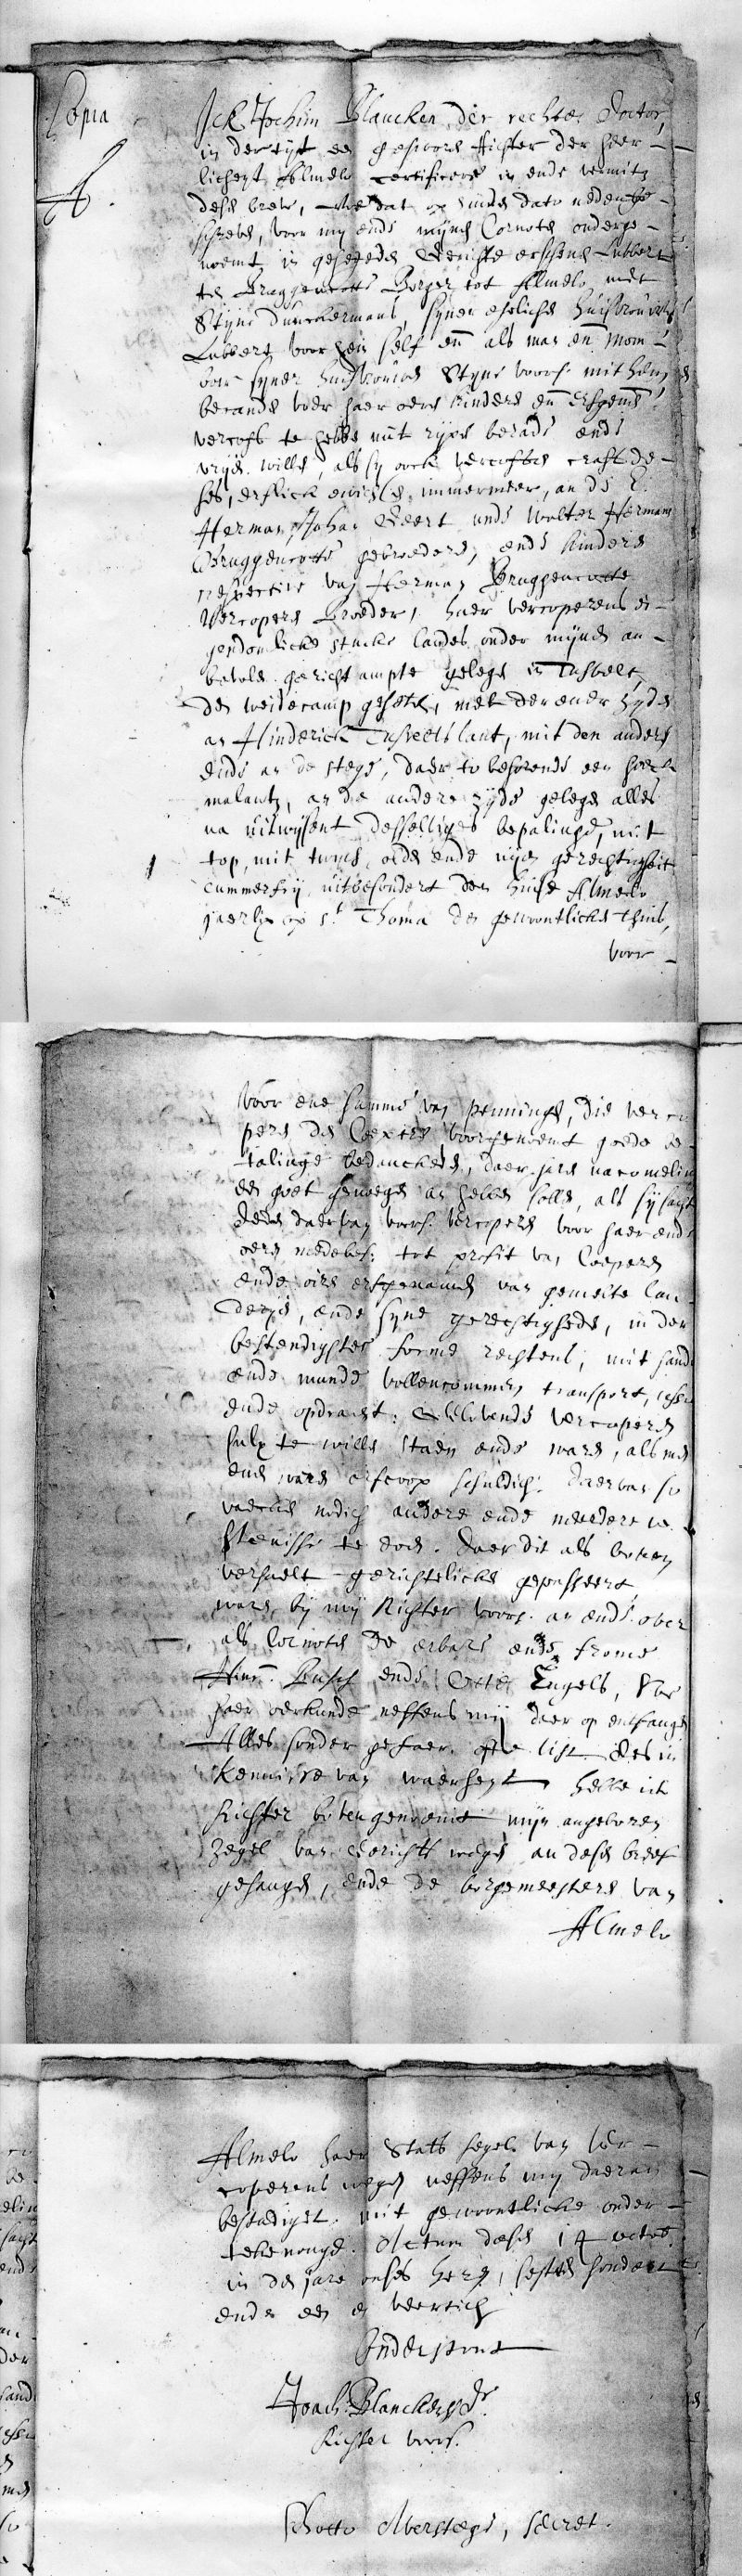 Copia
A.
Ick Jochim Blancken der rechten Doctor,
in der tyt een gesworen Richter der heer-
licheyt Almelo certificere in ende vermitz
desen breve, dat op huiden dato nedenbe-
schreven, voor my ende mynen Cornoten onderge-
noemt in gehegeden Gerichte erschenen Lubbert
ten Bruggencotte Borger tot Almelo met
Styne Dunckermans, syner ehelichen huisvrouwen
Lubbert voor hem self enn als man enn mom-
ber syner huisfrouwen Styne voors. mit hem
bekande voer haer oere kinderen enn erfgenamen
vercoft te hebben mit rypen berade ende
vryen willen, als sy oock vercoften craft de-
ses, erflick ewich immermeer, an de E.
Herman, Johan Geert unde Wolter Hermans
Bruggencotte gebroeders, ende kinders
respective van Herman Bruggencotte
Vercoperen Broeder, haer vercoperens ei-
gendomlicke stucke landes onder mynen an-
bevolen gericht ampte gelegen in Tusvelt,
den weidecamp geheten, met der ener zyden
an Hinderick Tusveltslant, mit den anderen
ende an de stege, daer to behorende een
malants, an de andere zyde gelegen alles
na uitwysent desselliges bepalinge, mit
top, mit twych, olde ende nye gerechtigheit
cummerfry uitbesondert den huise Almelo
jaerlix op St. Thoma den gewoontlicken thins,
voor
Voor ene summe van penningen, die verco-
peren den Coeperen voorgenoemt goede be-
talinge bedanckeden, daer
een goet genoegen an hebben solden, als sy sacht
deden daervan voors. vercoperen voor haer ende
oere medebes. tot profit van Coeperen
ende oire erfgenamen van gemelte lan-
derye, ende syne gerechtigheden, in der
bestendigster forme rechtens, mit hand
ende munde vollencommen transport, cessie
ende opdracht. Gelovende vercoperen
sulx te willen staen ende waren, als men
enen waren erfcoop schuldich. daervan so
vaecken nodich andere ende meerdere ve-
stenisse te doen. Daer dit als boven
verhaelt gerichtelicken gepasseert
waren by my Richter voors. an ende over
als Cornoten de erbare ende frome
Hinr. Busch ende Otto Engels, die
haer oerkunde neffens my daer op entfangen
Alles sonder gefaer ofte list. Des in
kennisse van waerheyt hebbe ick
Richter bovengenoemt myn angeboren
Zegel van Gerichts wegen an desen breef
gehangen, ende de borgemeesteren van
Almelo
Almelo haer Stats segel van ver-
coperens wegen neffens my daeran
bestadiget. mit gewoontlicke onder-
tekeninge. Actum desen 14 octob.
in den jare onses heren, sestien hondert
ende een en veertich
Onderstont
Joach. Blancken Dr.
Richter voors.
Otto Averstege, secret.